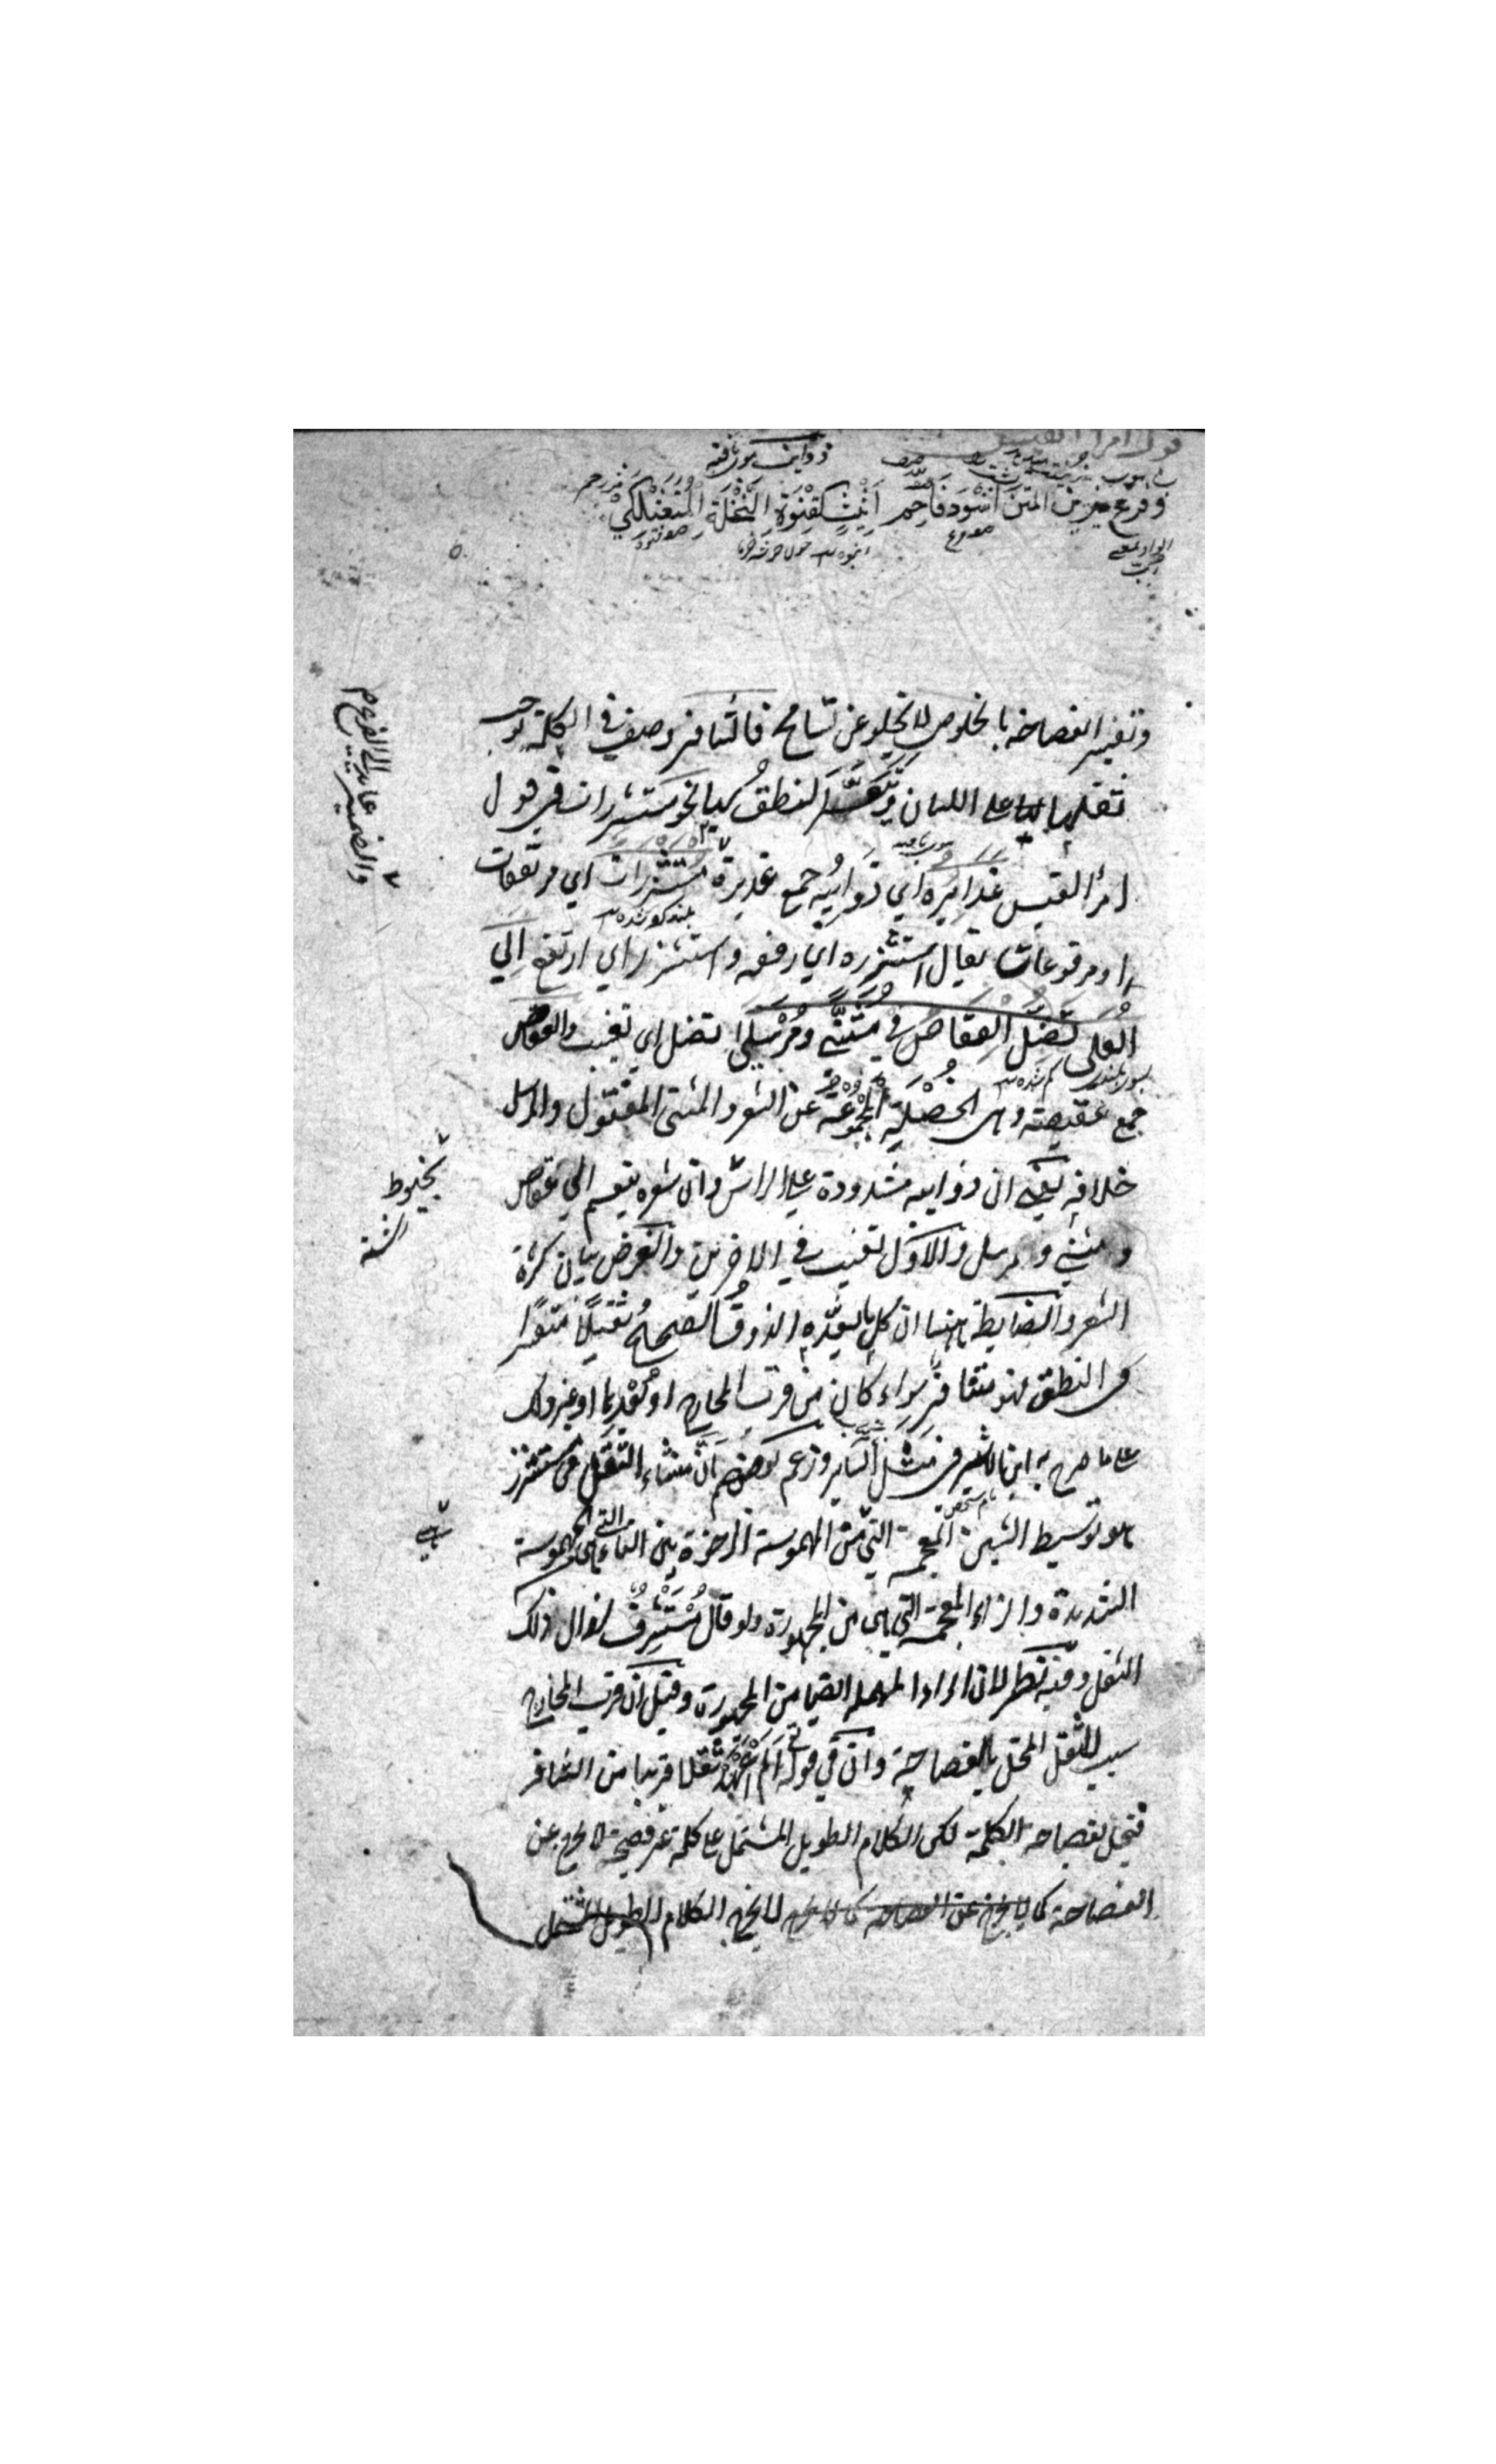 قول امرأ القيس
ذوايب موي بافته
وفرع يزين المتن اسْوَد فاحِم اَثِيْثٍ كَقِنْوَةِ النَّخْلَة المُتَعَثْكِلِيْ
الواو بمعني رب
وتفسير الفصاحة بالخلوص لا يخلو عن تسامح فالتنافر وصف في الكلمة توجب
ثقلها على اللسان وتعسّر النطقُ بها نحو مستشزرات في قول
امرأ القيس غدايره اي ذوايبه جمع غديرة مستشزرات اي مرتفعات
او مرفوعات يقال استشزره اي رفعه واستشزر اي ارتفع الي
العُلي تَضِلّ الْعِقَاصُ فِيْ مُثَنًّي ومُرْسَلِي تضل اي تغيب والعقاص
جمع عقيصة وهي الخُصْلَة المجْمُوعَة من الشعر والمثنى المفتول والمرسل
خلافه يعني ان ذوايبه مشدودة علي الراس وان شعره ينقسم الي عقاص
ومثني ومرسل والاوّل تغيب في الاخرين والغرض بيان كثرة
الشعر والضابطة ههنا ان كل ما يعدّه الذوقُ الصحيحُ ثقيلًا متعسّرا
في النطق فهو متنافر سواء كان من قرب المخارج او بُعْدِها او غير ذلك
على ما صرح به ابن الاثير في مثل السّاير وزعم بعضهم اَنَّ منشاء الثقل في مستشزر
هو توسيط الشين المعجمة التي من المهموسة الرخوة بين التاء التي هي من المهموسة
الشديدة والزاء المعجمة التي هي من المجهورة ولو قال مُسْتَشْرِفٌ لزال ذلك
الثقل وفيه نظر لان الراء المهملة ايضا من المجهورة وقيل ان قرب المخارج
سبب للثقل المخل بالفصاحة وان في قوله تع اَلَمْ اَعْهَدْ ثقلا قريبا من التنافر
فيخل بفصاحة الكلمة لكن الكلام الطويل المشتمل على كلمة غير فصيحة لا يخرج عن
الفصاحة كما لا يخرج عن الفصاحة كما لا يخرج لا يخرج الكلام الطويل المشتمل
والضمير عايد الى الفرع
بخيوط